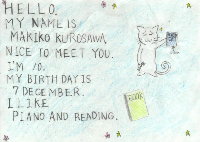 HELLO.
MY NAME IS
MAKIKO KUROSAWA.
NICE TO MEET YOU.
I'M 10.
MY BIRTHDAY IS
7 DECEMBER.
I LIKE
PIANO AND READING.
BOOK